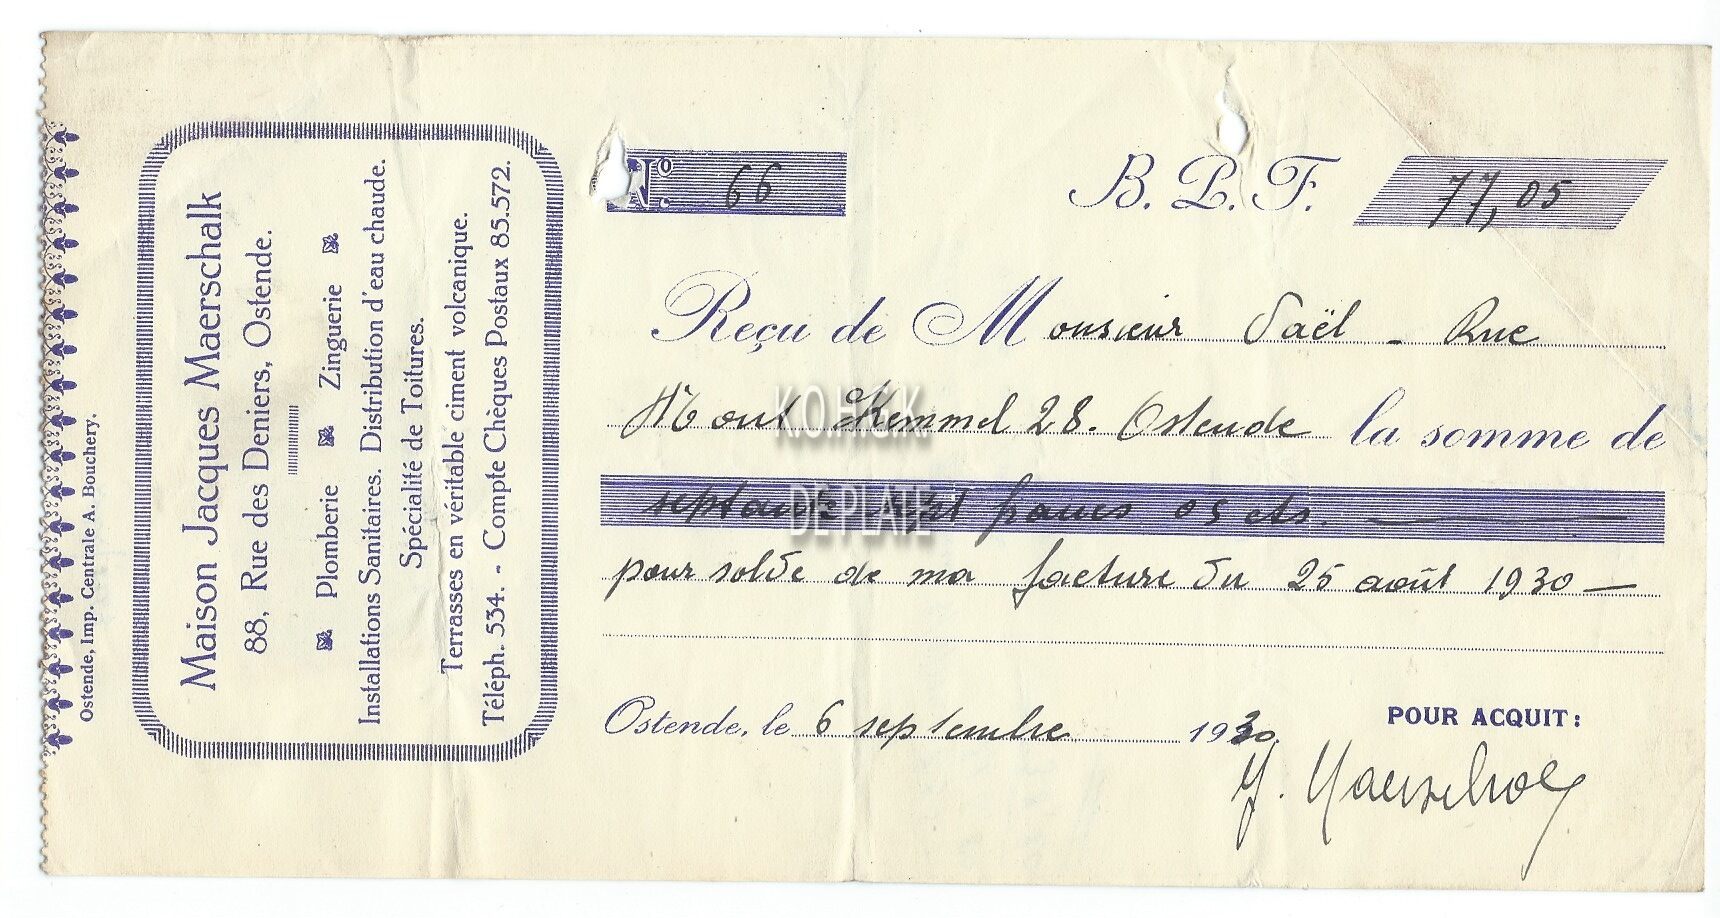 Ostende, Imp. Centrale A. Bouchery.
Maison Jacques Maerschalk
88, Rue des Deniers, Ostende.
Plomberie Zinguerie
Installations Sanitaires. Distribution d'eau chaude.
Spécialité de Toitures.
Terrasses en véritable ciment volcanique.
Téléph. 534. - Compte Chèques Postaux 85.572.
No. 66 B. P. F. 77,05
Reçu de Monsieur - Rue
Mont Kemmel 28. Ostende la somme de
septante sept francs 05 cts.
pour solde de ma facture du 25 août 1930 -
Ostende, le 6 septembre 1930
POUR ACQUIT:
J. Maerschalk
K.O.H.G.K.
DE PLATE